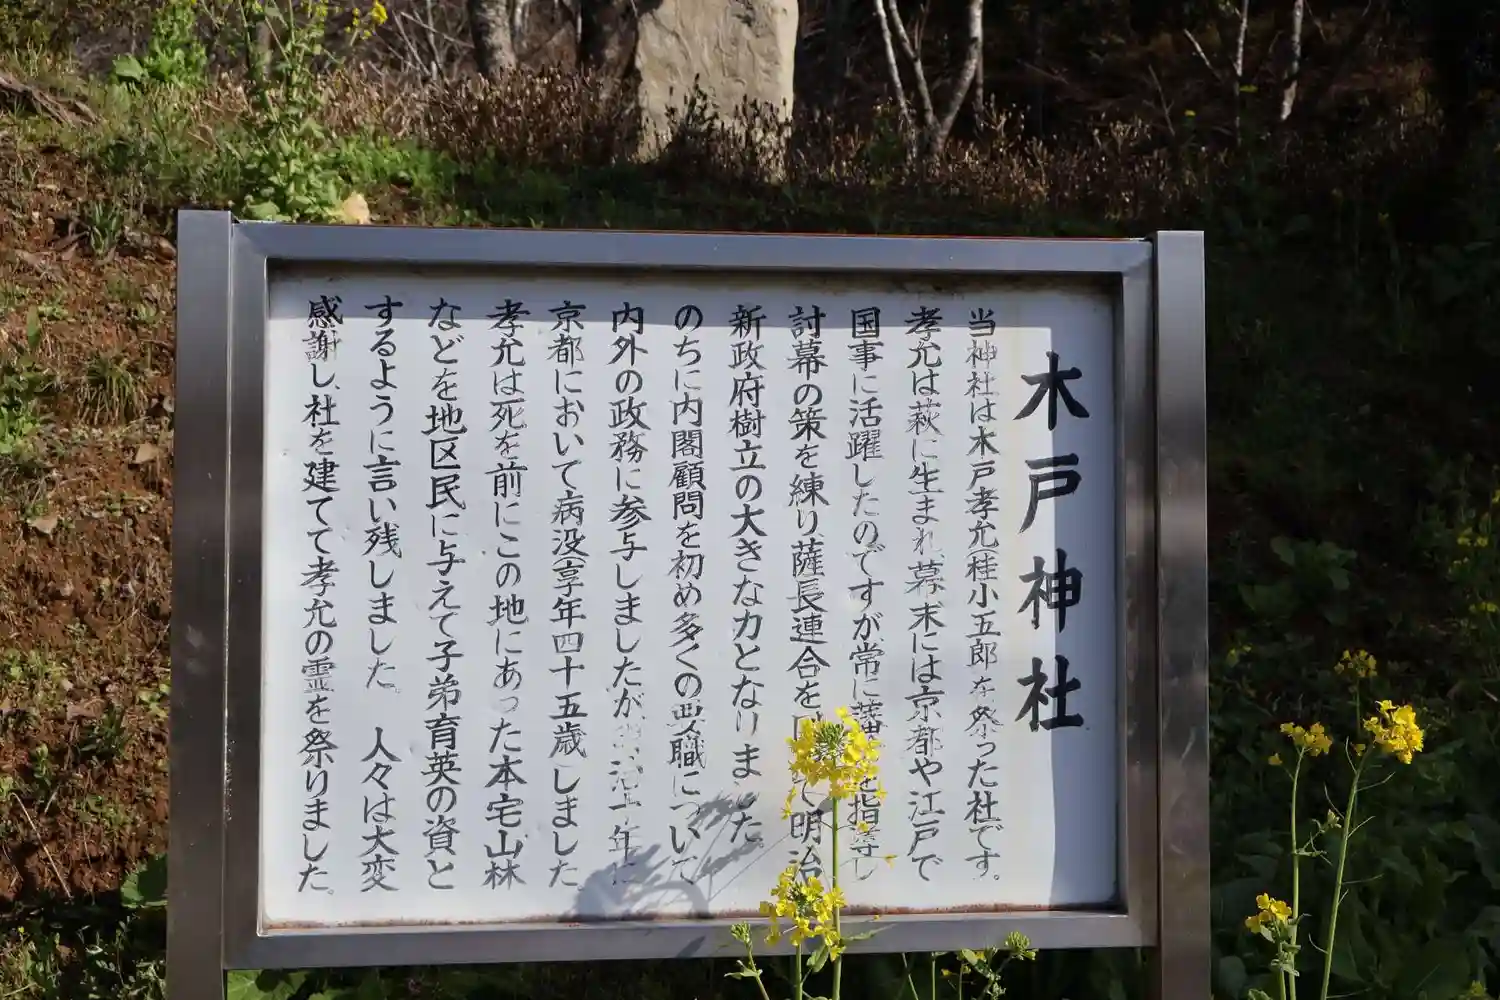 木戸神社
当神社は木戸孝允(桂小五郎を祭った社です。
孝允は萩に生まれ、幕末には京都や江戸で
国事に活躍したのですが、常に藩 を指導し
討幕の策を練り薩長連合を て明治
新政府樹立の大きな力となりました。
のちに内閣顧問を初め多くの要職について
内外の政務に参与しましたが、明治十年に
京都において病没(享年四十五歳)しました
孝允は死を前にこの地にあった本宅山林
などを地区民に与えて子弟育英の資と
するように言い残しました。 人々は大変
感謝し、社を建てて孝允の霊を祭りました。